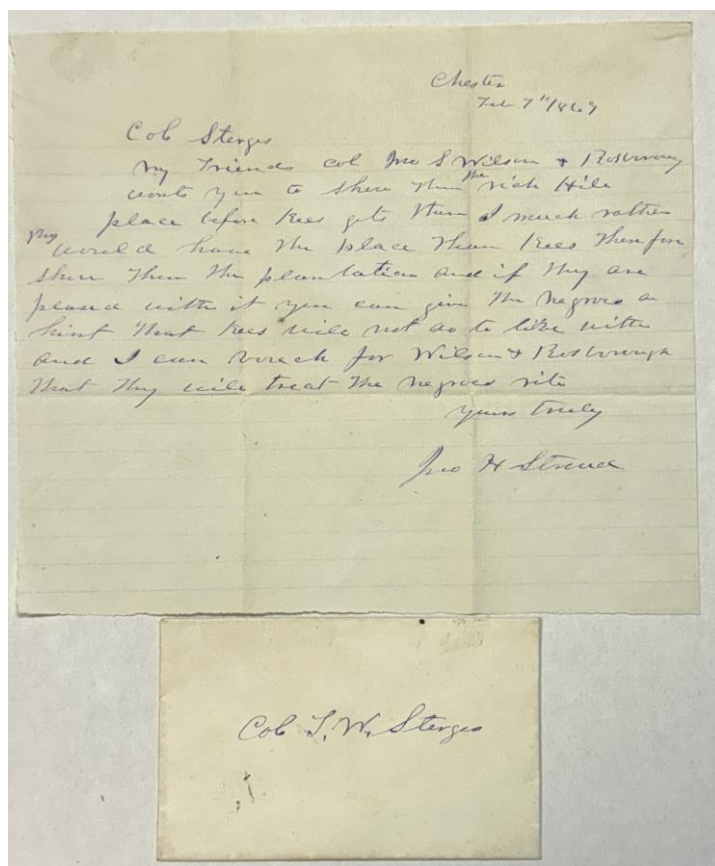 Chester
Feb 7th/1869
Col Sterges
My Friends col Jno S Wilson & Rosborough
wants you to shew them the rich Hile
place before Kees gets them I much rather
they would have the place than Kees Therefore
shew them the plantation and if they are
pleased with it you can give the negroes a
hint that Kees will not do to live with
and I can vouch for Wilson & Rosborough
that they will treat the negroes rite
yours truly
Jno H
Col S. W. Sterges